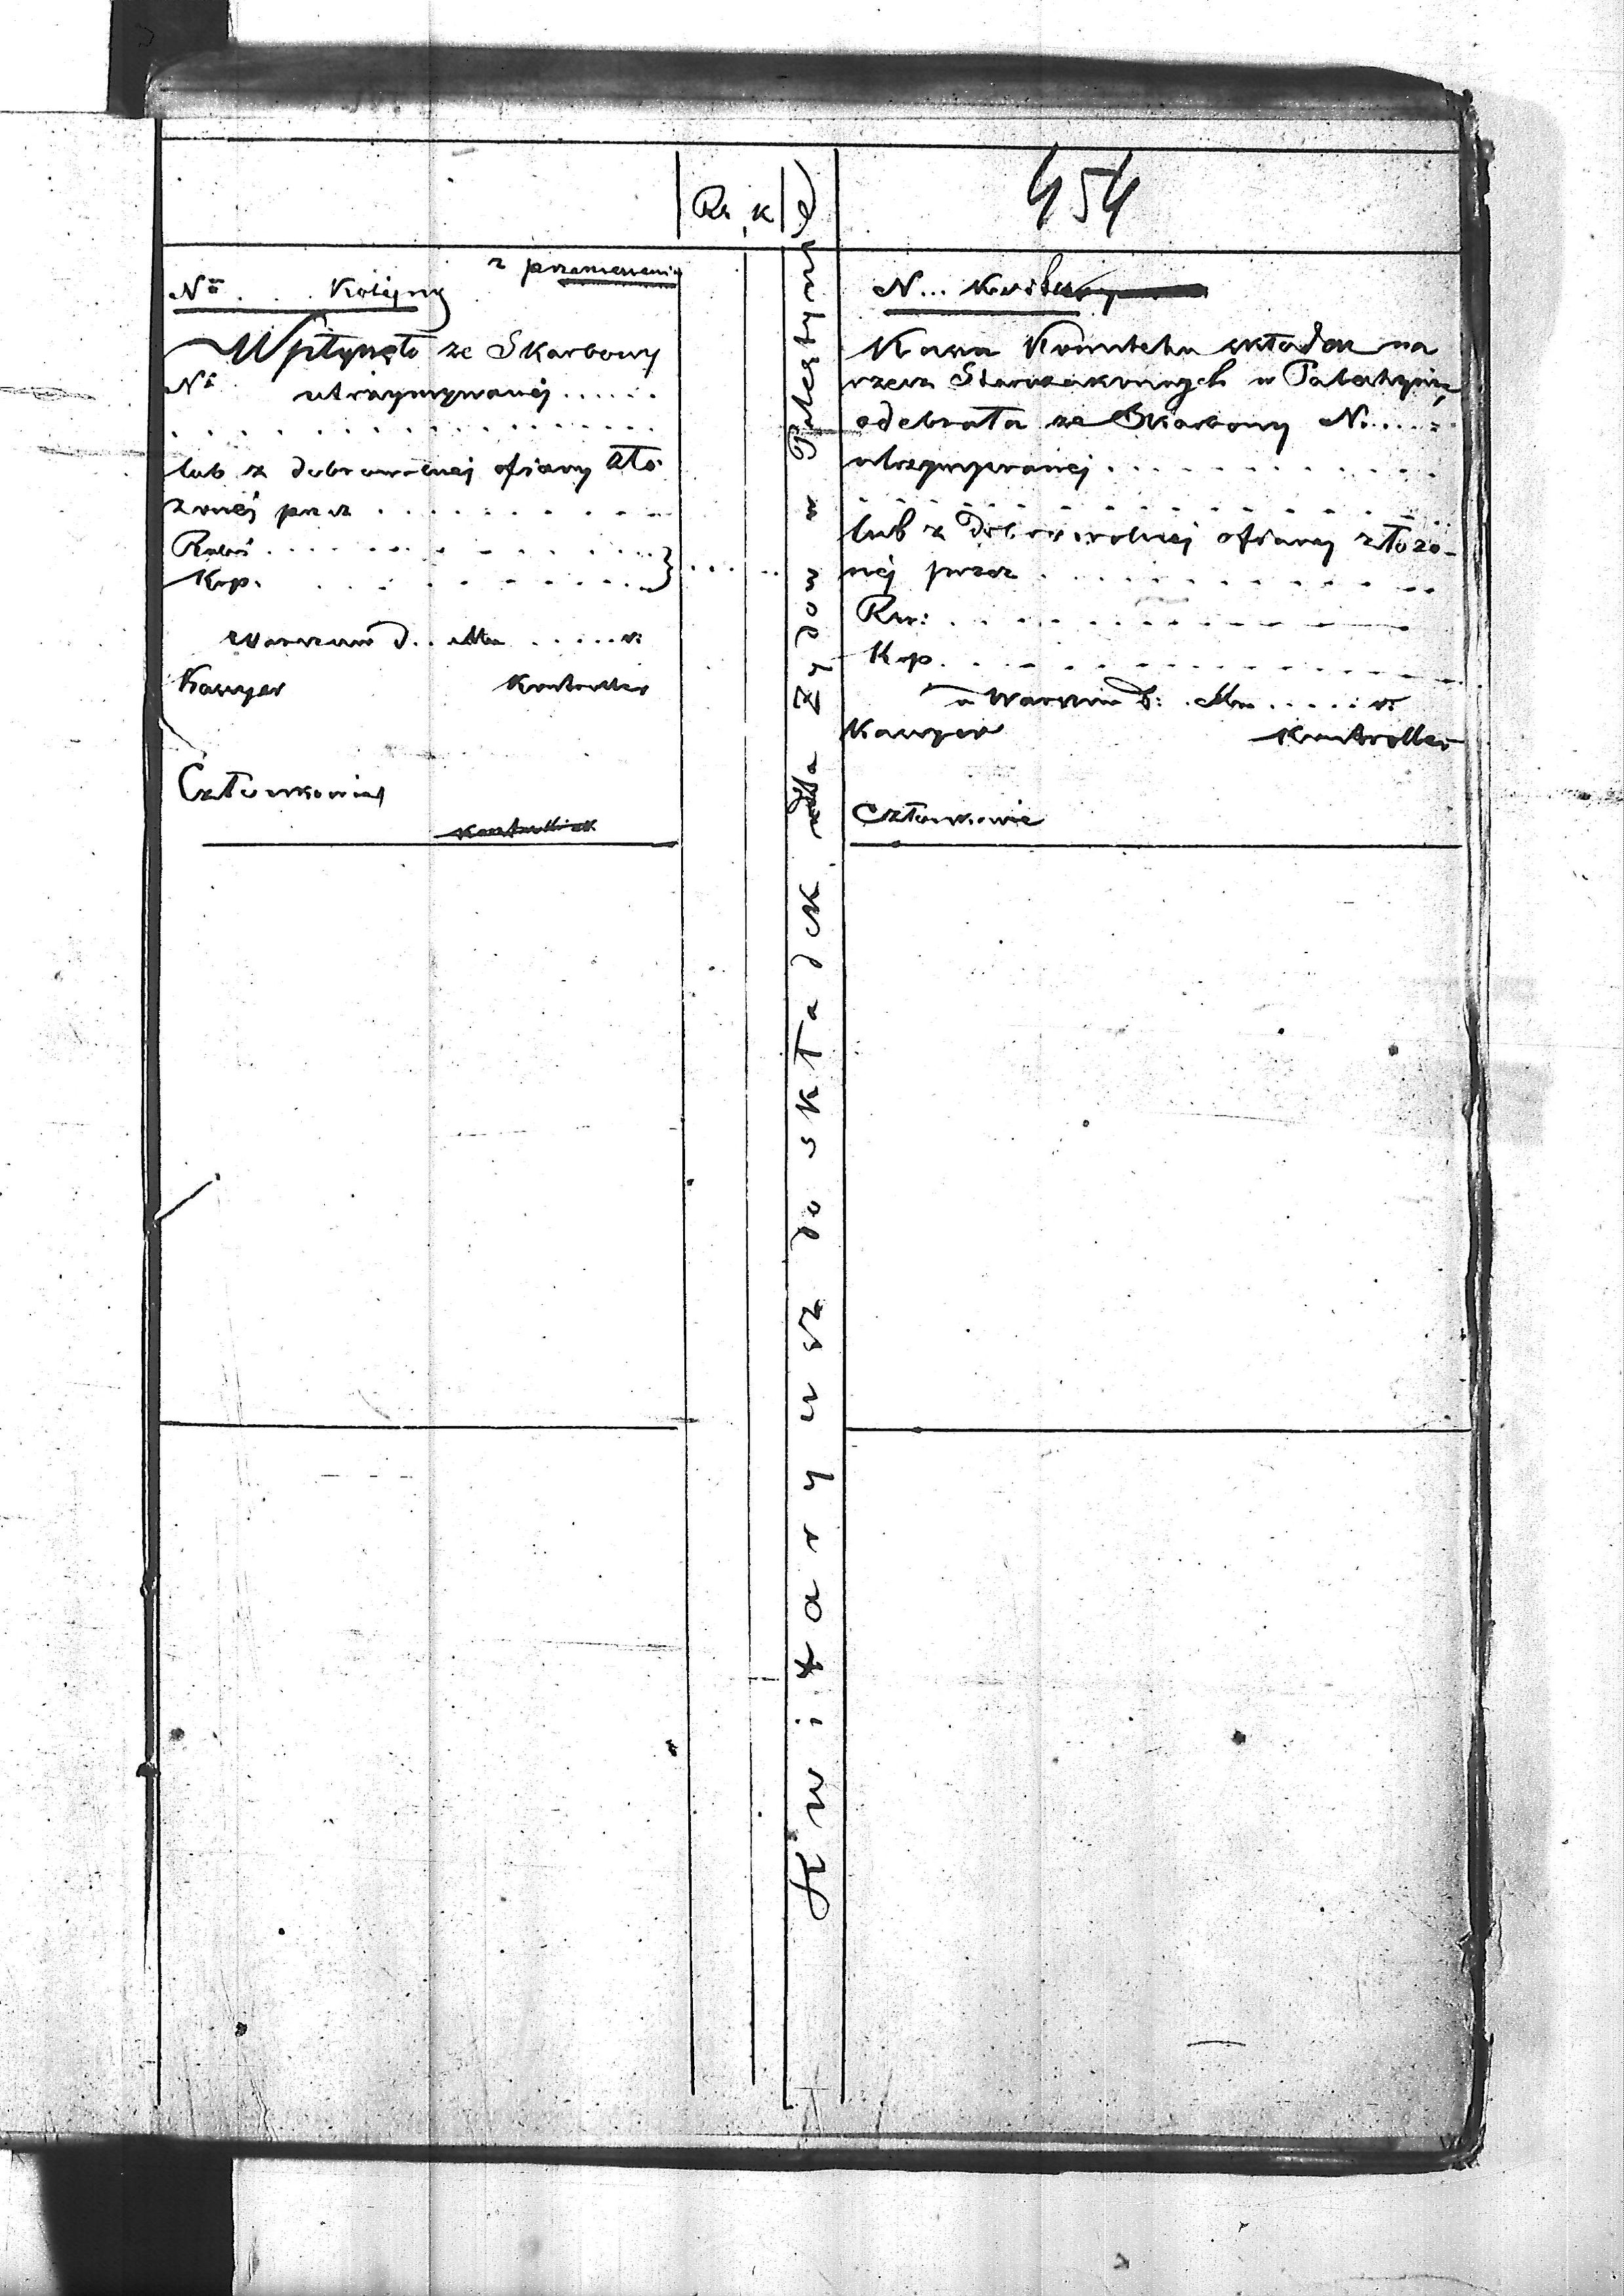 454
Rs. k
z przeniesienia
No . . . Kolejny
Wpłynęło ze Skarbony
No utrzymywanej . . . . . .
lub z dobrowolnej ofiary zło
żonej przez . . . . . . . .
Rubli . . . . . . . . . . .
Kop. . . . . . . . . . . .
Warszawa d . . Mca . . . . . r:
Kassyer Kontroller
Członkowie
Kwitaryusz do składek dla Żydów w Palestynie
N . . . Kwitu
Kassa Komitetu składek na
rzecz Starozakonnych w Palestynie,
odebrała ze Skarbony No. . . . .
utrzymywanej . . . . . . . . . .
lub z dobrowolnej ofiary złożo-
nej przez . . . . . . . . . .
Rs: . . . . . . . . . . .
Kop. . . . . . . . . . . .
w Warszawie d: . Mca . . . . . r:
Kassyer Kontroller
Członkowie